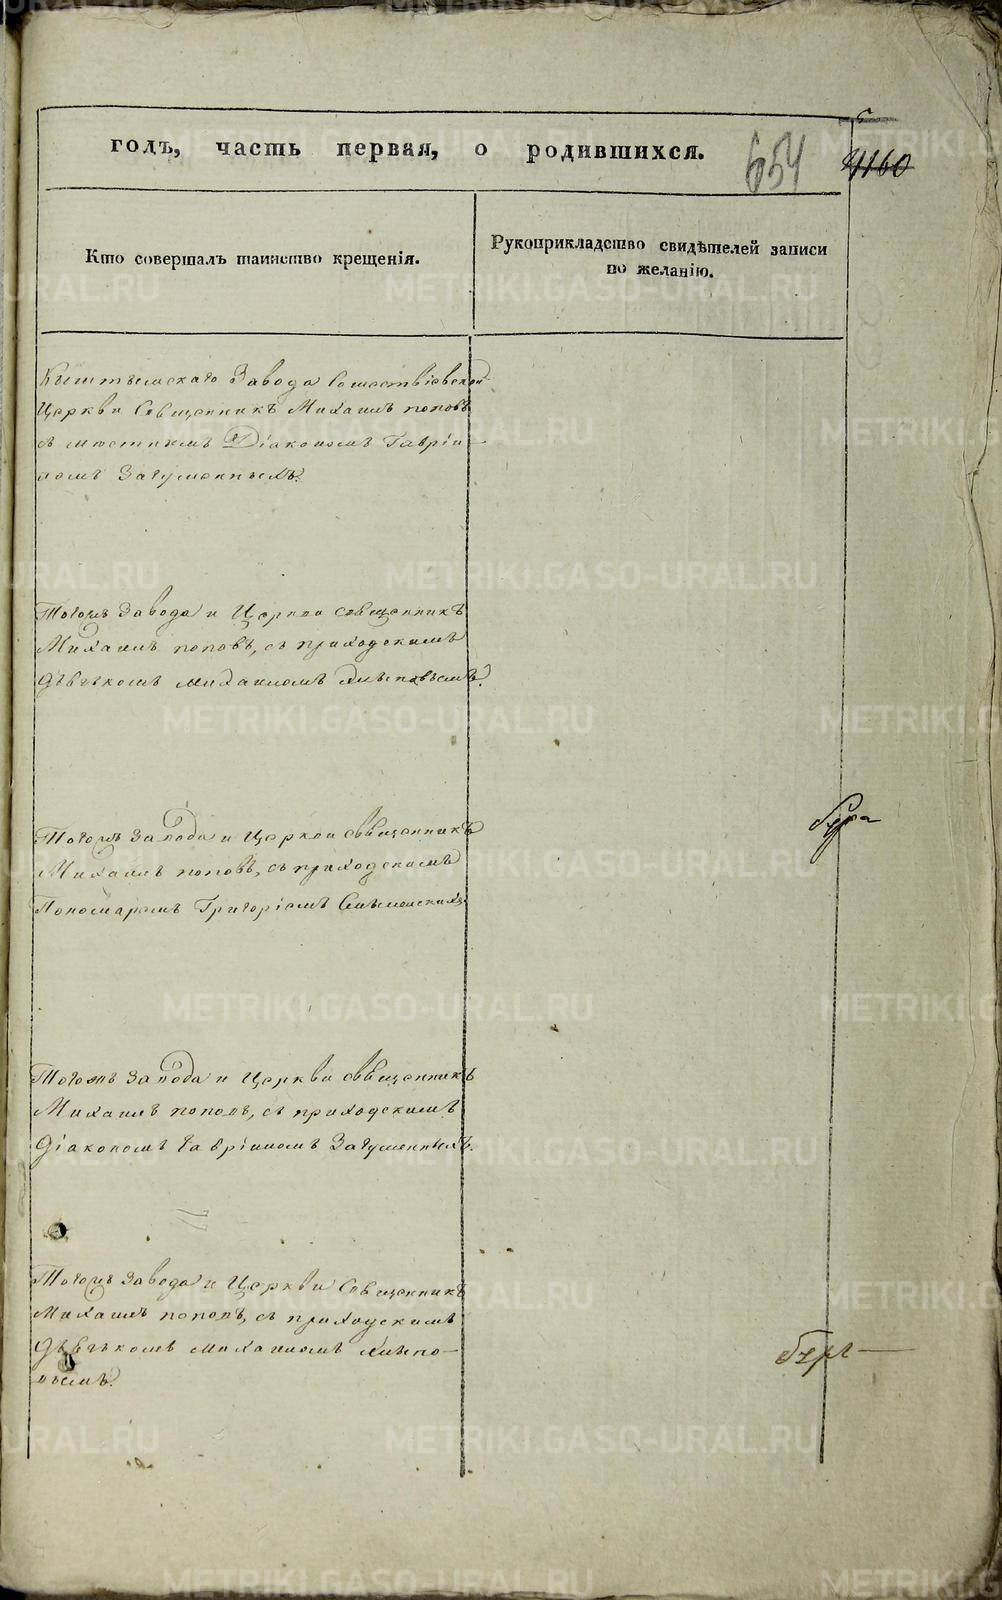 годъ, часть первая, о родившихся.
654
4160
Кто совершалъ таинство крещенія.
Рукоприкладство свидѣтелей записи
по желанію.
Кыштымскаго Завода Сошествіевской
Церкви Священникъ Михаилъ Поповъ
съ мѣстнымъ Діакономъ Гаврі-
ломъ Загуменныхъ.
Тогожъ Завода и Церкви священникъ
Михаилъ Поповъ, съ приходскимъ
Дьячкомъ Михаиломъ
Тогожъ Завода и Церкви священникъ
Михаилъ Поповъ, съ приходскимъ
Пономаремъ Григоріемъ
Тогожъ Завода и Церкви священникъ
Михаилъ Поповъ, съ приходскимъ
Діакономъ Гавріиломъ Загуменныхъ.
Тогожъ Завода и Церкви Священникъ
Михаилъ Поповъ, съ приходскимъ
Дьячкомъ Михаиломъ
METRIKI.GASO-URAL.RU